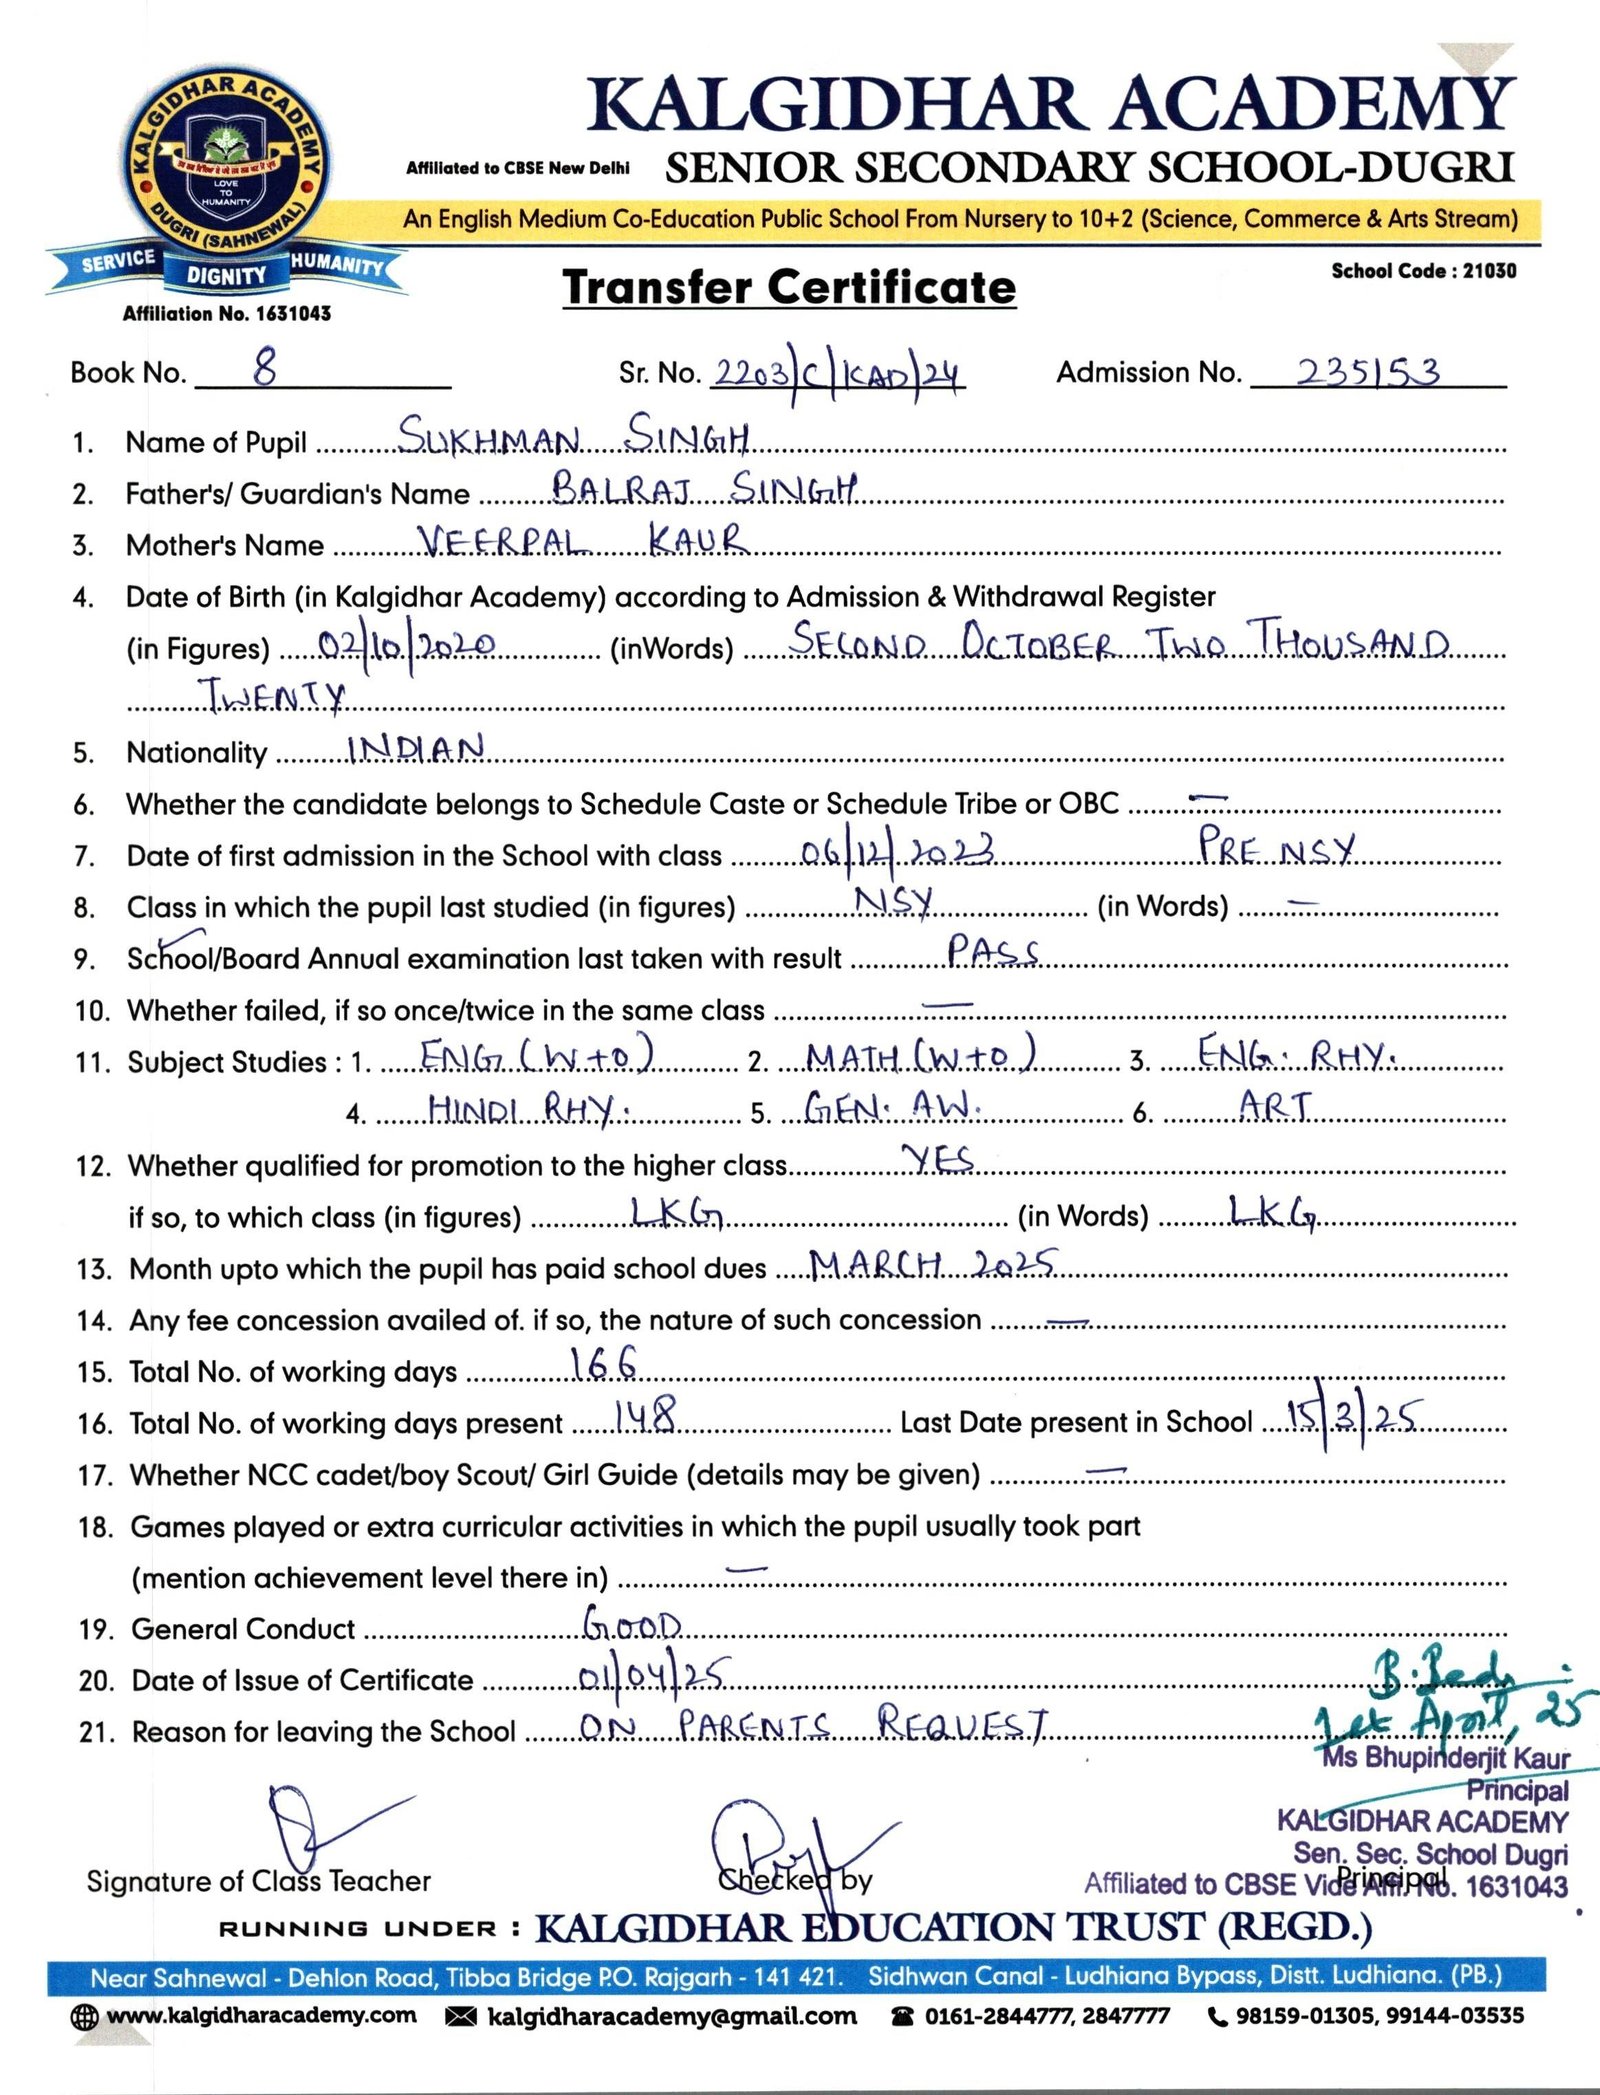 KALGIDHAR ACADEMY
DUGRI (SAHNEWAL)
LOVE
TO
HUMANITY
SERVICE DIGNITY HUMANITY
Affiliation No. 1631043
KALGIDHAR ACADEMY
Affiliated to CBSE New Delhi SENIOR SECONDARY SCHOOL-DUGRI
An English Medium Co-Education Public School From Nursery to 10+2 (Science, Commerce & Arts Stream)
School Code : 21030
Transfer Certificate
Book No. 8 Sr. No. 2203/C/KAD/24 Admission No. 235153
1. Name of Pupil SUKHMAN SINGH
2. Father's/ Guardian's Name BALRAJ SINGH
3. Mother's Name VEERPAL KAUR
4. Date of Birth (in Kalgidhar Academy) according to Admission & Withdrawal Register
(in Figures) 02/10/2020 (inWords) SECOND OCTOBER TWO THOUSAND
TWENTY
5. Nationality INDIAN
6. Whether the candidate belongs to Schedule Caste or Schedule Tribe or OBC —
7. Date of first admission in the School with class 06/12/2023 PRE NSY
8. Class in which the pupil last studied (in figures) NSY (in Words) —
9. School/Board Annual examination last taken with result PASS
10. Whether failed, if so once/twice in the same class —
11. Subject Studies : 1. ENG (W+O) 2. MATH (W+O) 3. ENG. RHY.
4. HINDI RHY. 5. GEN. AW. 6. ART
12. Whether qualified for promotion to the higher class YES
if so, to which class (in figures) LKG (in Words) LKG
13. Month upto which the pupil has paid school dues MARCH 2025
14. Any fee concession availed of. if so, the nature of such concession —
15. Total No. of working days 166
16. Total No. of working days present 148 Last Date present in School 15/3/25
17. Whether NCC cadet/boy Scout/ Girl Guide (details may be given) —
18. Games played or extra curricular activities in which the pupil usually took part
(mention achievement level there in) —
19. General Conduct GOOD
20. Date of Issue of Certificate 01/04/25
21. Reason for leaving the School ON PARENTS REQUEST
1st April, 25
Ms Bhupinderjit Kaur
Principal
KALGIDHAR ACADEMY
Sen. Sec. School Dugri
Affiliated to CBSE Vide Aff. No. 1631043
Signature of Class Teacher Checked by Principal
RUNNING UNDER : KALGIDHAR EDUCATION TRUST (REGD.)
Near Sahnewal - Dehlon Road, Tibba Bridge P.O. Rajgarh - 141 421. Sidhwan Canal - Ludhiana Bypass, Distt. Ludhiana. (PB.)
www.kalgidharacademy.com kalgidharacademy@gmail.com 0161-2844777, 2847777 98159-01305, 99144-03535